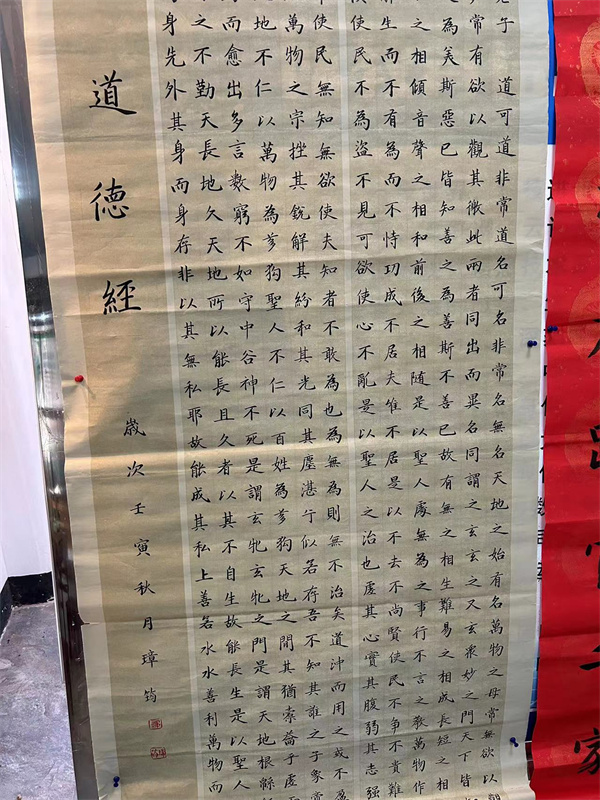 道可道非常道名可名非常名無名天地之始有名萬物之母常無欲以
常有欲以觀其徼此兩者同出而異名同謂之玄玄之又玄衆妙之門天下皆
之為美斯惡已皆知善之為善斯不善已故有無之相生難易之相成長短之相
之相傾音聲之相和前後之相隨是以聖人處無為之事行不言之教萬物作
生而不有為而不恃功成不居夫唯不居是以不去不尚賢使民不爭不貴難
使民不為盜不見可欲使心不亂是以聖人之治也虛其心實其腹弱其志强
使民無知無欲使夫知者不敢為也為無為則無不治矣道沖而用之或不盈
萬物之宗挫其銳解其紛和其光同其塵湛兮似若存吾不知其誰之子象帝
地不仁以萬物為芻狗聖人不仁以百姓為芻狗天地之間其猶橐籥乎虛
而愈出多言數窮不如守中谷神不死是謂玄牝玄牝之門是謂天地根緜
之不勤天長地久天地所以能長且久者以其不自生故能長生是以聖人
身先外其身而身存非以其無私耶故能成其私上善若水水善利萬物而
道德經
歲次壬寅秋月璋筠